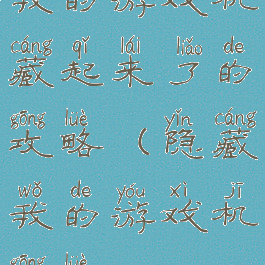 我的游戏机
cáng qǐ lái liǎo de
藏起来了的
gōng lüè yǐn cáng
攻略（隐藏
wǒ de yóu xì jī
我的游戏机
gōng lüè